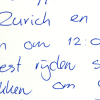 Zurich en
an om 12:0
est rijden s
kken om